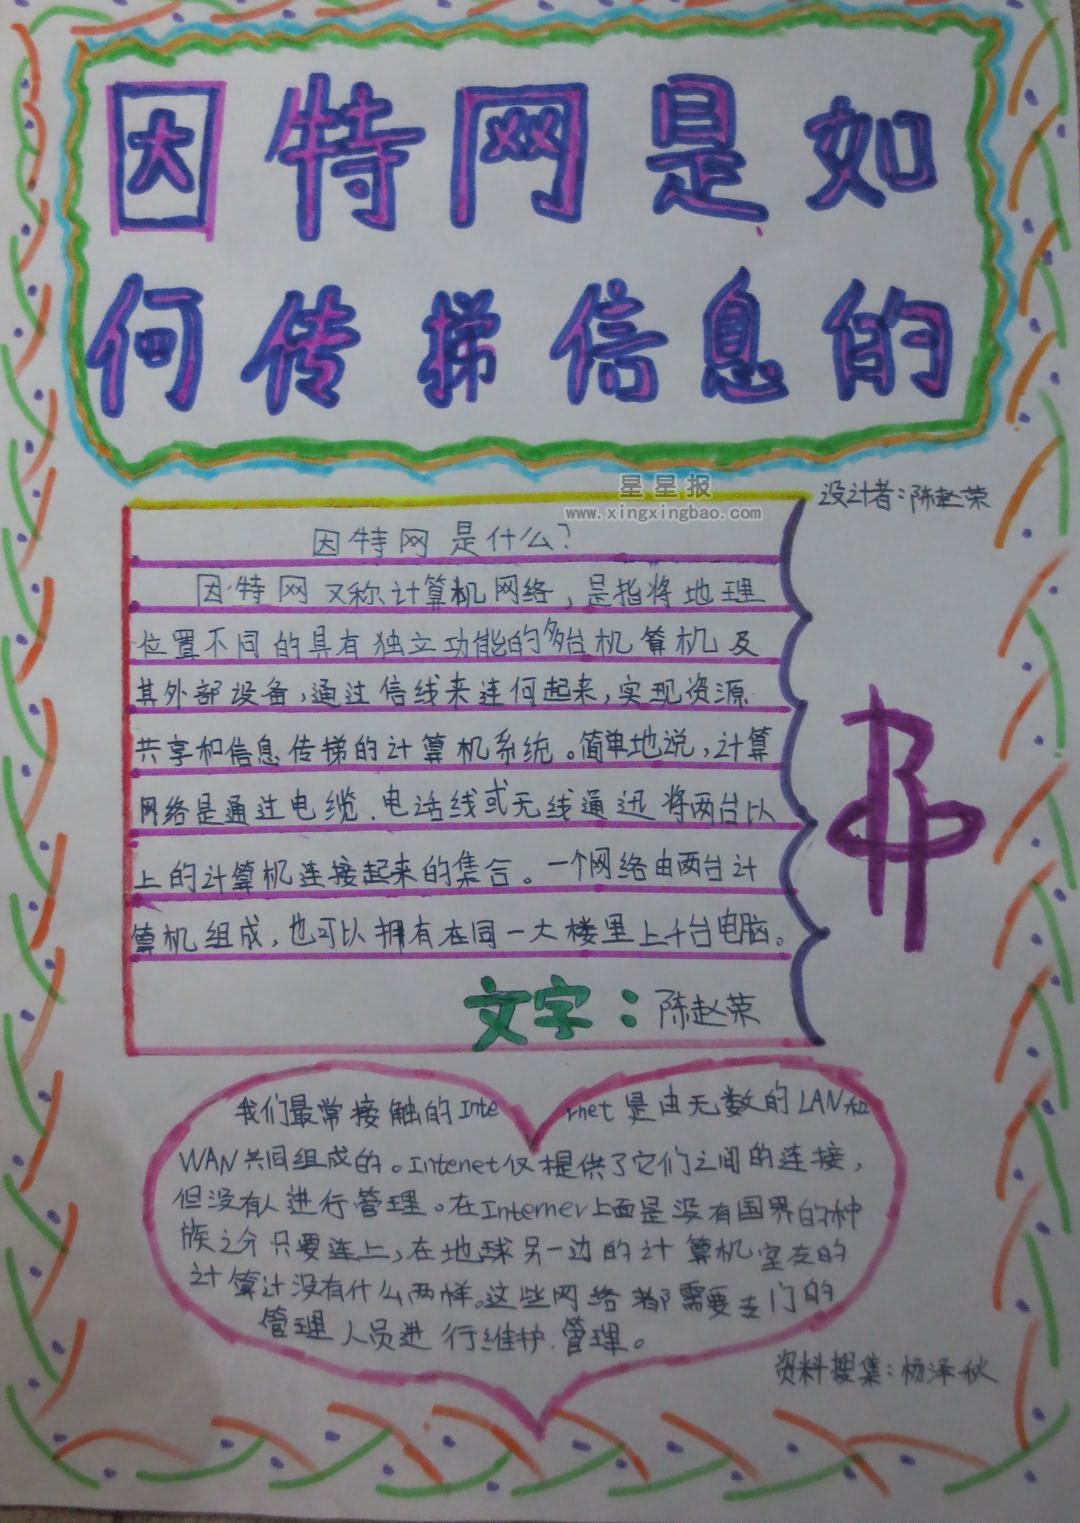 因特网是如
何传递信息的
星星报
www.xingxingbao.com
设计者：陈赵荣
因特网是什么？
因特网又称计算机网络，是指将地理
位置不同的具有独立功能的多台机算机及
其外部设备，通过信线来连何起来，实现资源
共享和信息传梯的计算机系统。简单地说，计算
网络是通过电缆、电话线或无线通迅将两台以
上的计算机连接起来的集合。一个网络由两台计
算机组成，也可以拥有在同一大楼里上千台电脑。
文字：陈赵荣
我们最常接触的Internet是由无数的LAN和
WAN共同组成的。Intenet仅提供了它们之间的连接，
但没有人进行管理。在Internev上面是没有国界的种
族之分只要连上，在地球另一边的计算机室友的
计算计没有什么两样。这些网络都需要专门的
管理人员进行维护、管理。
资料搜集：杨泽秋